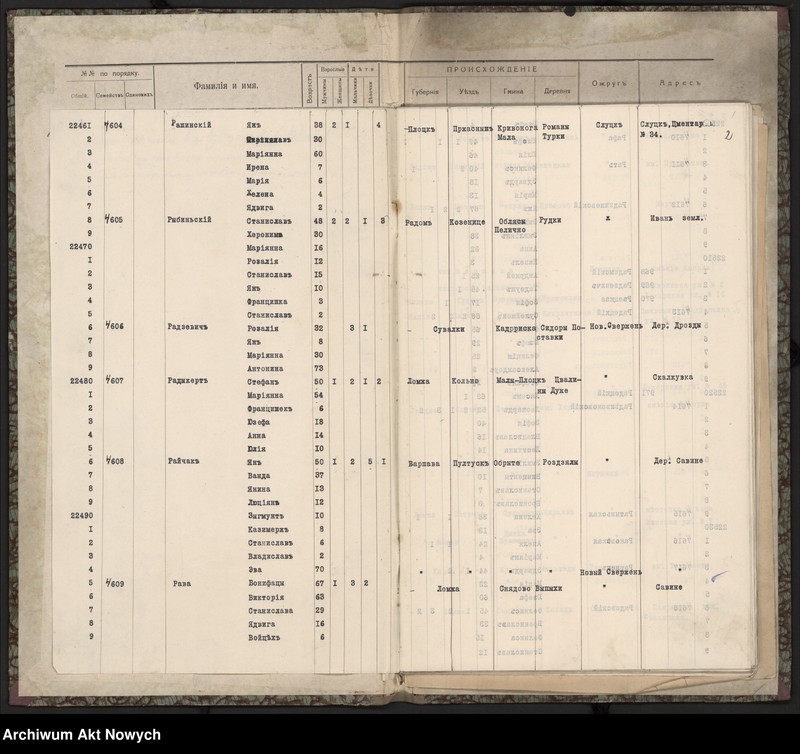 №№ по порядку. Фамилія и имя. Возрастъ Взрослые Дѣти ПРОИСХОЖДЕНІЕ Округъ Адресъ
Общій. Семействъ Одиночекъ Мужчины Женщины Мальчики Дѣвочки Губернія Уѣздъ Гмина Деревня
22461 4/604 Рапинскій Янъ 38 2 I 4 Плоцкъ Кривонога Романы Слуцкъ Слуцкъ,
2 30 Мала Турки № 34.
3 Маріянна 60
4 Ирена 7
5 Марія 6
6 Хелена 4
7 Ядвига 2
8 4/605 Рыбиньскій Станиславъ 48 2 2 I 3 Радомъ Козенице Рудки Иванъ земл.
9 Херонимъ 30 Пелично
22470 Маріянна 16
I Розалія 12
2 Станиславъ 15
3 Янъ 10
4 Францишка 3
5 Станиславъ 2
6 4/606 Радзевичъ Розалія 32 3 I Сувалки Сидоры По- Нов.Свержень Дер. Дрозды
7 Янъ 8 ставки
8 Маріянна 30
9 Антонина 73
22480 4/607 Радыкертъ Стефанъ 50 I 2 I 2 Ломжа Кольно Малы-Плоцкъ Цвали- " Скалкувка
I Маріянна 54 ны Дуже
2 Францишекъ 6
3 Юзефа 18
4 Анна 14
5 Юлія 10
6 4/608 Райчакъ Янъ 50 I 2 5 I Варшава Пултускъ Обрыте Роздзялы " Дер. Савине
7 Ванда 37
8 Янина 13
9 Люціянъ 12
22490 Зыгмунтъ 10
I Казимеръ 8
2 Станиславъ 6
3 Владиславъ 2
4 Эва 70 " " " " Новый Свержень "
5 4/609 Рава Бонифацы 67 I 3 2 Ломжа Снядово Выпыхи " Савине
6 Викторія 63
7 Станислава 29
8 Ядвига 16
9 Войцѣхъ 6
Archiwum Akt Nowych